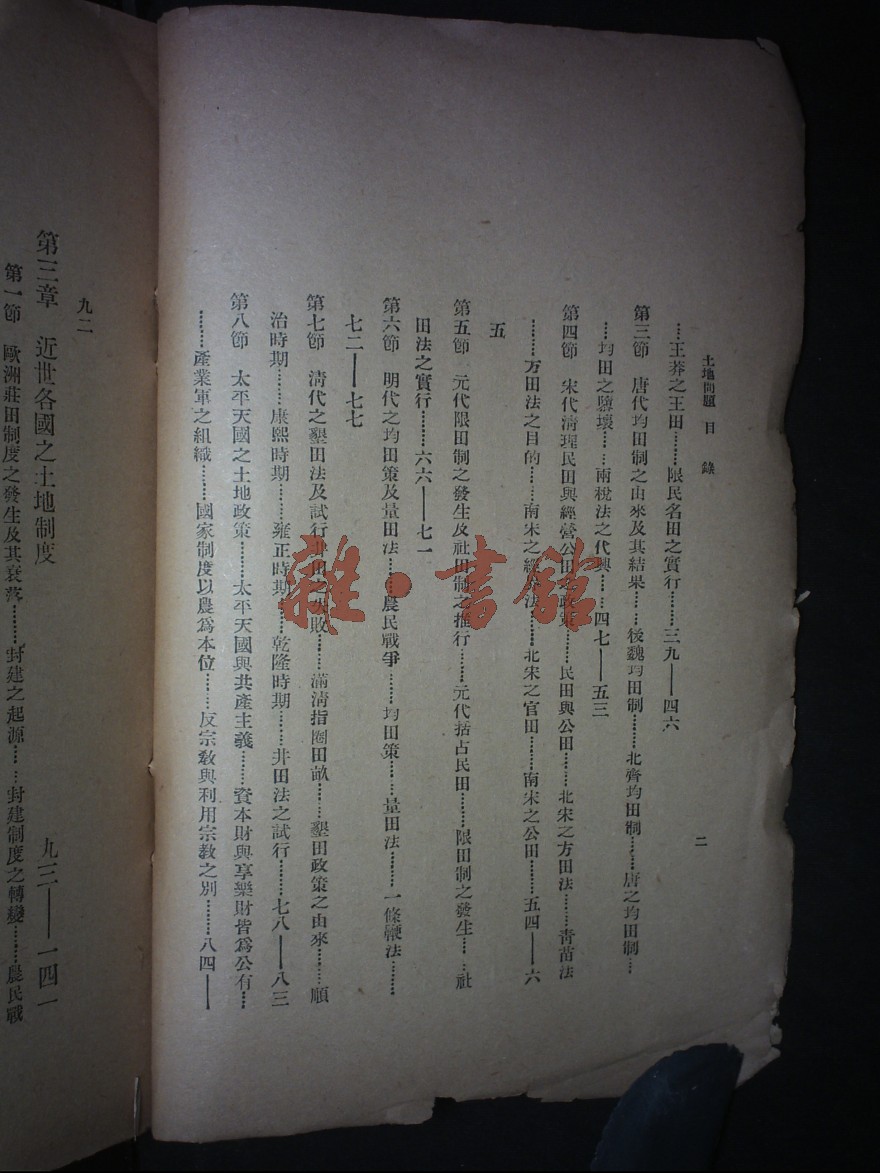 土地問題 目錄
二
……王莽之王田……限民名田之實行……三九——四六
第三節 唐代均田制之由來及其結果……後魏均田制……北齊均田制……唐之均田制…
…均田之隳壞……兩稅法之代興……四七——五三
第四節 宋代清理民田與經營公田之政策……民田與公田……北宋之方田法……青苗法
……方田法之目的……南宋之經界法……北宋之官田……南宋之公田……五四——六
五
第五節 元代限田制之發生及社田制之推行……元代括占民田……限田制之發生……社
田法之實行……六六——七一
第六節 明代之均田策及量田法……農民戰爭……均田策……量田法……一條鞭法……
七二——七七
第七節 清代之墾田法及試行井田之失敗……滿清指圈田畝……墾田政策之由來……順
治時期……康熙時期……雍正時期……乾隆時期……井田法之試行……七八——八三
第八節 太平天國之土地政策……太平天國與共產主義……資本財與享樂財皆爲公有…
……產業軍之組織……國家制度以農爲本位……反宗教與利用宗教之別……八四——
九二
第三章 近世各國之土地制度 九三——一四一
第一節 歐洲莊田制度之發生及其衰落……封建之起源……封建制度之轉變……農民戰
雜·書館